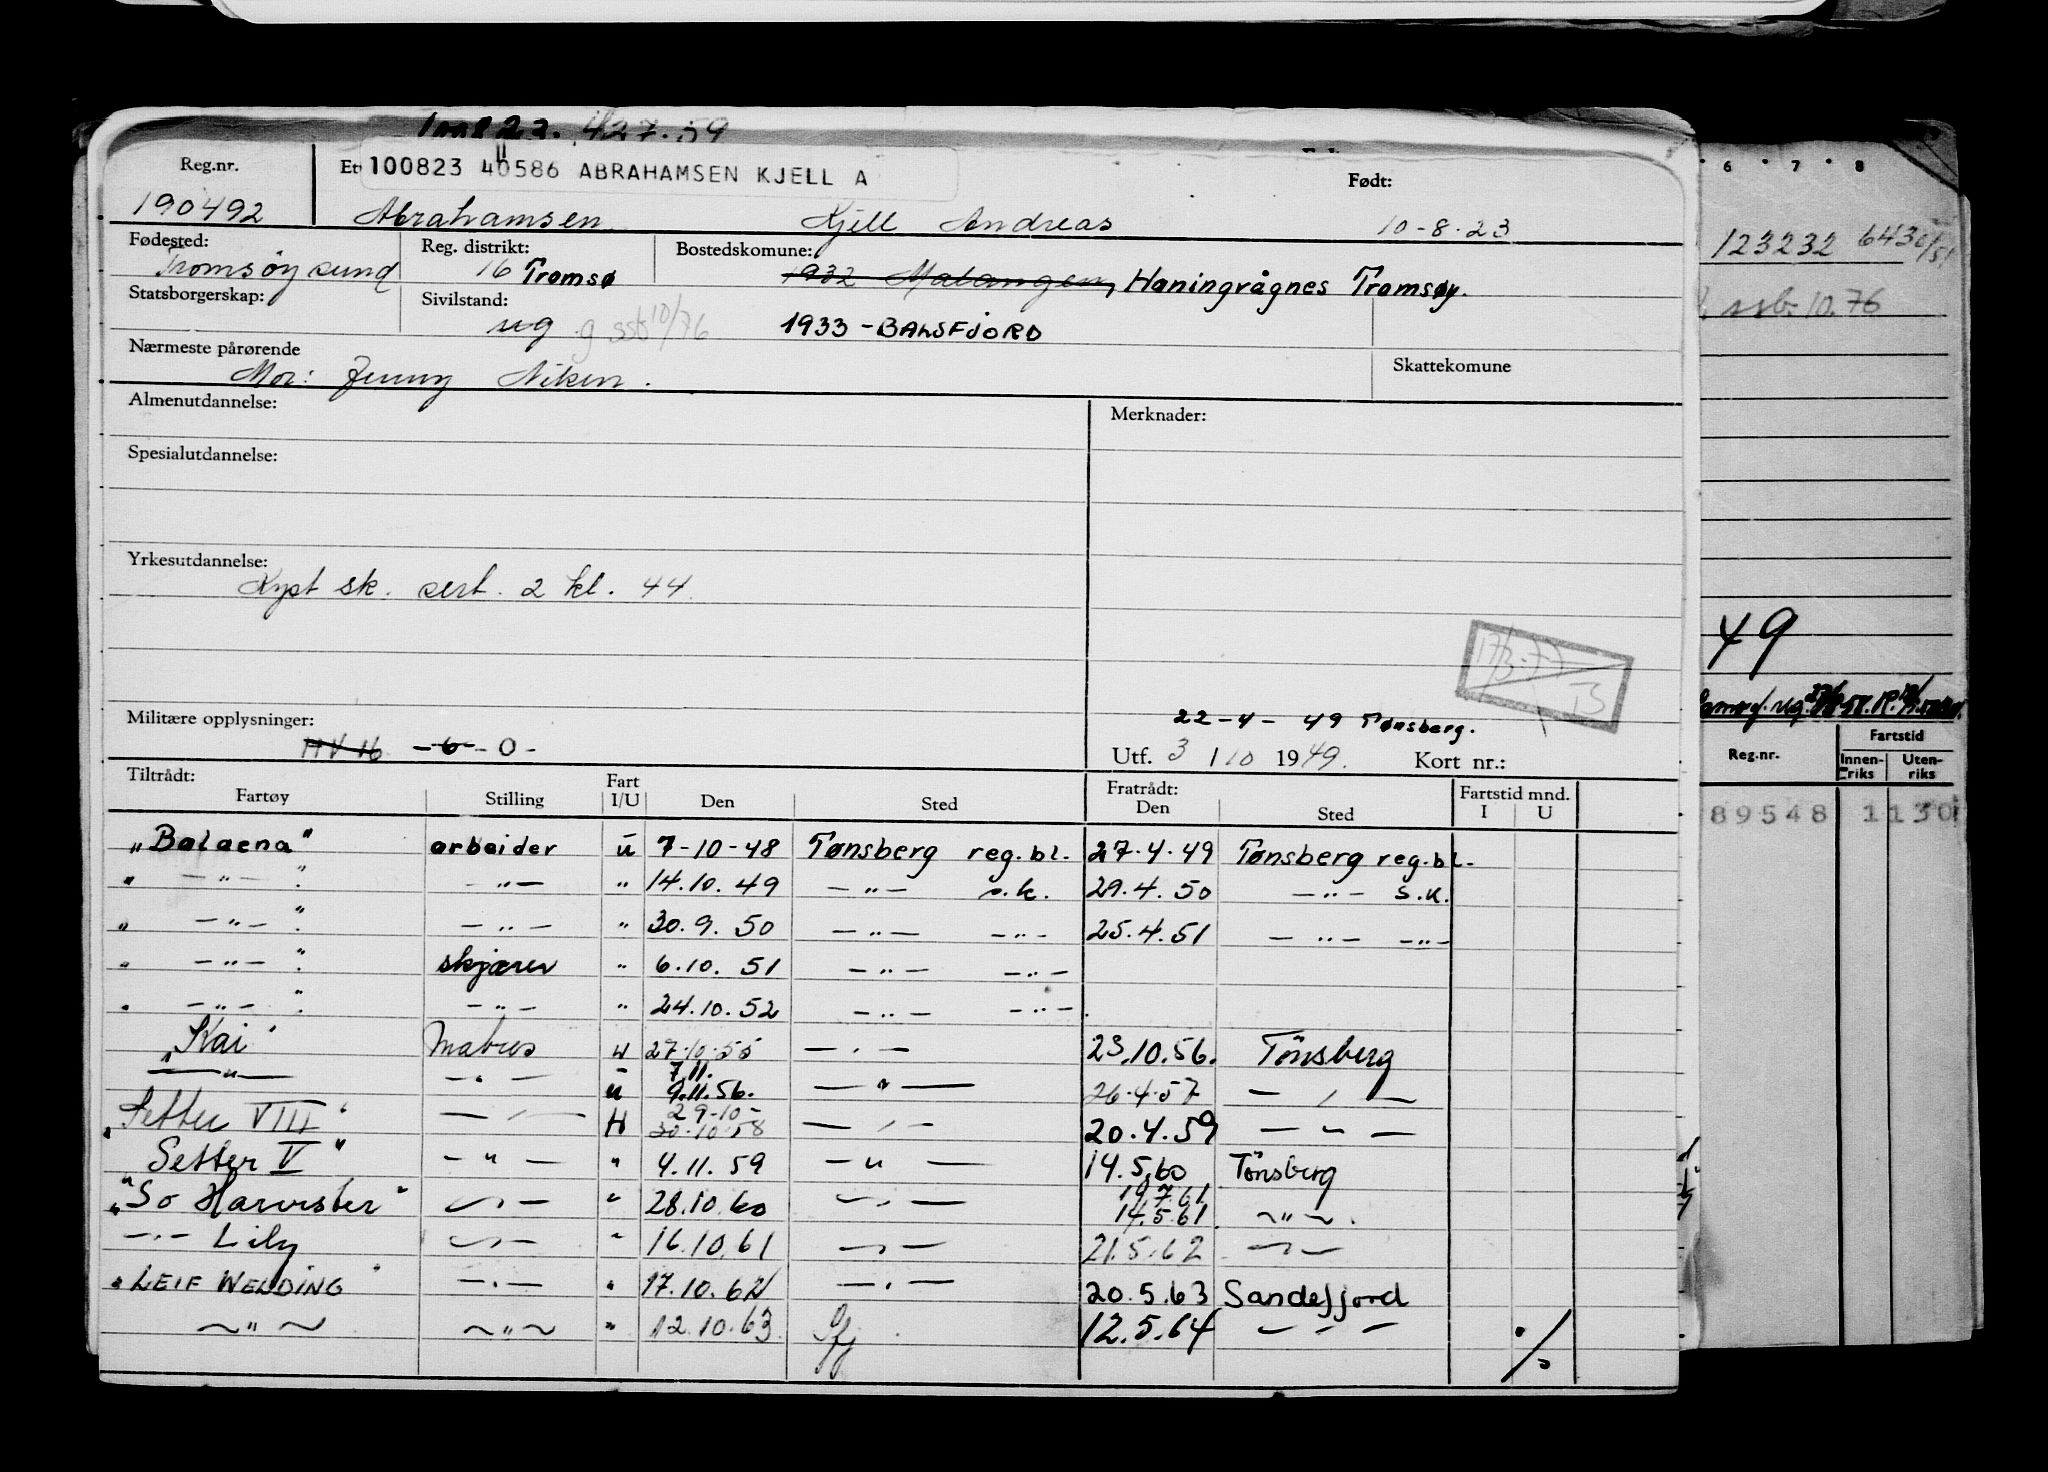 Reg.nr. Et 100823 40586 ABRAHAMSEN KJELL A Født:
190492 Abrahamsen Kjell Andreas 10-8-23
Fødested: Reg. distrikt: Bostedskomune:
Tromsøysund 16 Tromsø 1932 Malangen, Haningrågnes Tromsøy.
Statsborgerskap: Sivilstand:
ug g ssb 10/76 1933 - BALSFJORD
Nærmeste pårørende Skattekomune
Mor: Jenny Niken.
Almenutdannelse: Merknader:
Spesialutdannelse:
Yrkesutdannelse:
Kyst sk. sert. 2 kl. 44
17/3-77
TS
Militære opplysninger: 22-4-49 Tønsberg.
HV 16 -6- O- Utf. 3/10 1949. Kort nr.:
Tiltrådt: Fart Fratrådt: Fartstid mnd.
Fartøy Stilling I/U Den Sted Den Sted I U
"Balaena" arbeider u 7-10-48 Tønsberg reg.bl. 27.4.49 Tønsberg reg.bl.
" -"- " -"- " 14.10.49 -"- s.k. 29.4.50 -"- s.k.
" -"- " -"- " 30.9.50 -"- -"- 25.4.51 -"- -"-
" -"- " skjærer " 6.10.51 -"- -"-
" -"- " -"- " 24.10.52 -"- -"-
"Kai" Matros u 27.10.55 -"- 23.10.56. Tönsberg
-"- -"- u 7.11. 9.11.56. -"- 26.4.57 -"-
"Setter VIII" -"- H 29-10- 30.10.58 -"- 20.4.59 -"-
Setter V" -"- " 4.11.59 -"- 14.5.60 Tönsberg
"So Harvister" -"- " 28.10.60 -"- 19.7.61 14.5.61 -"-
-"- Lily -"- " 16.10.61 -"- 21.5.62 -"-
"LEIF WELDING" -"- " 17.10.62 -"- 20.5.63 Sandefjord
-"- -"- " 12.10.63 Sfj 12.5.64 -"-
6 7 8
123232
ssb. 10.76
49
Reg.nr. Fartstid
Innen-riks Uten-riks
89548 1130